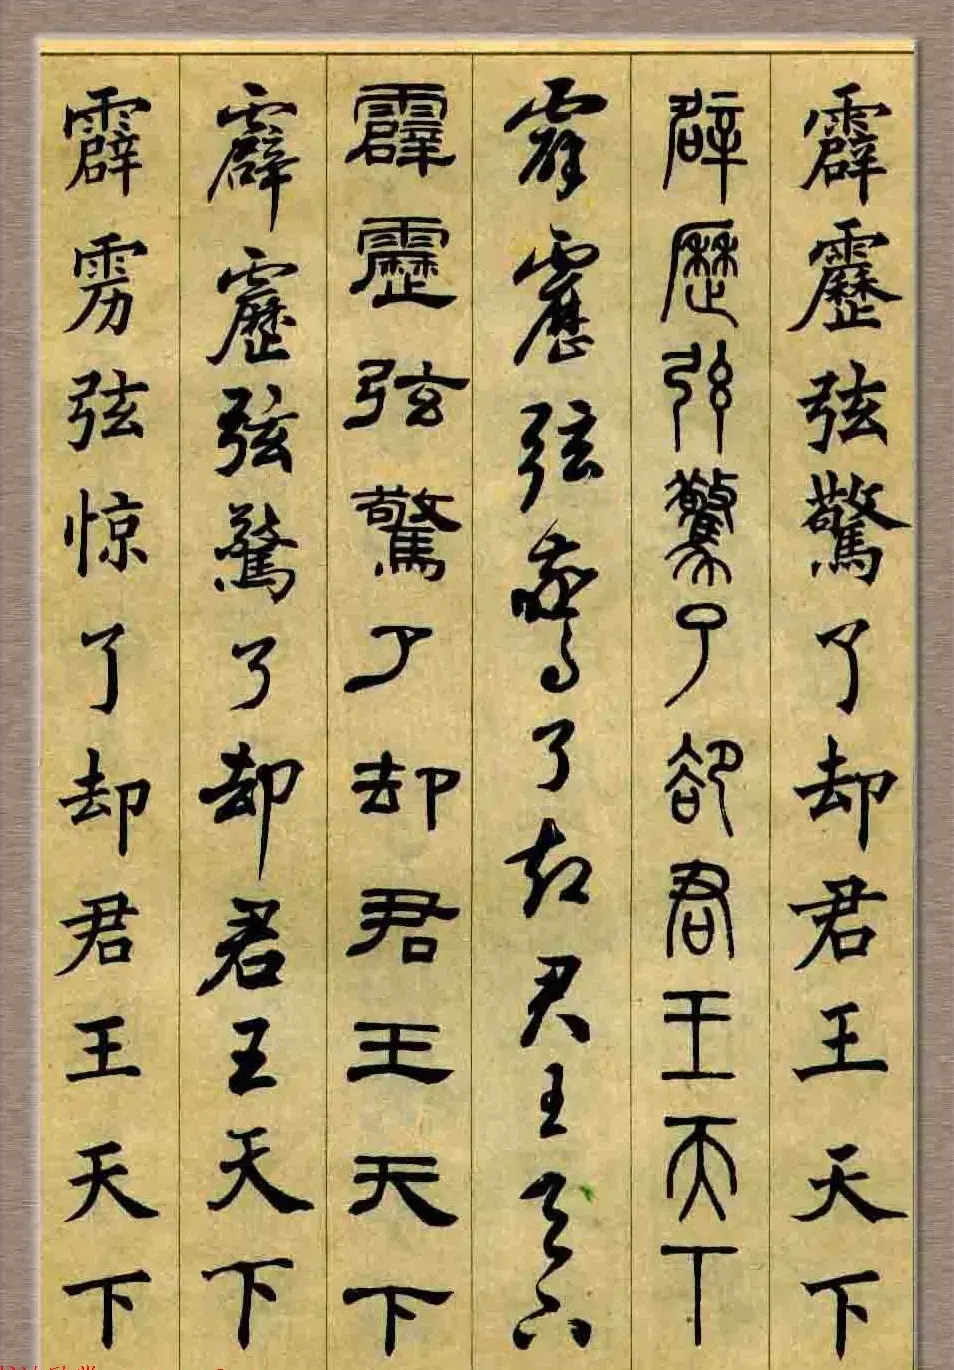 霹靂弦驚了却君王天下
辟歷弦驚了卻君王天下
霹靂弦驚了却君王天下
霹靂弦驚了却君王天下
霹靂弦驚了却君王天下
霹雳弦惊了却君王天下